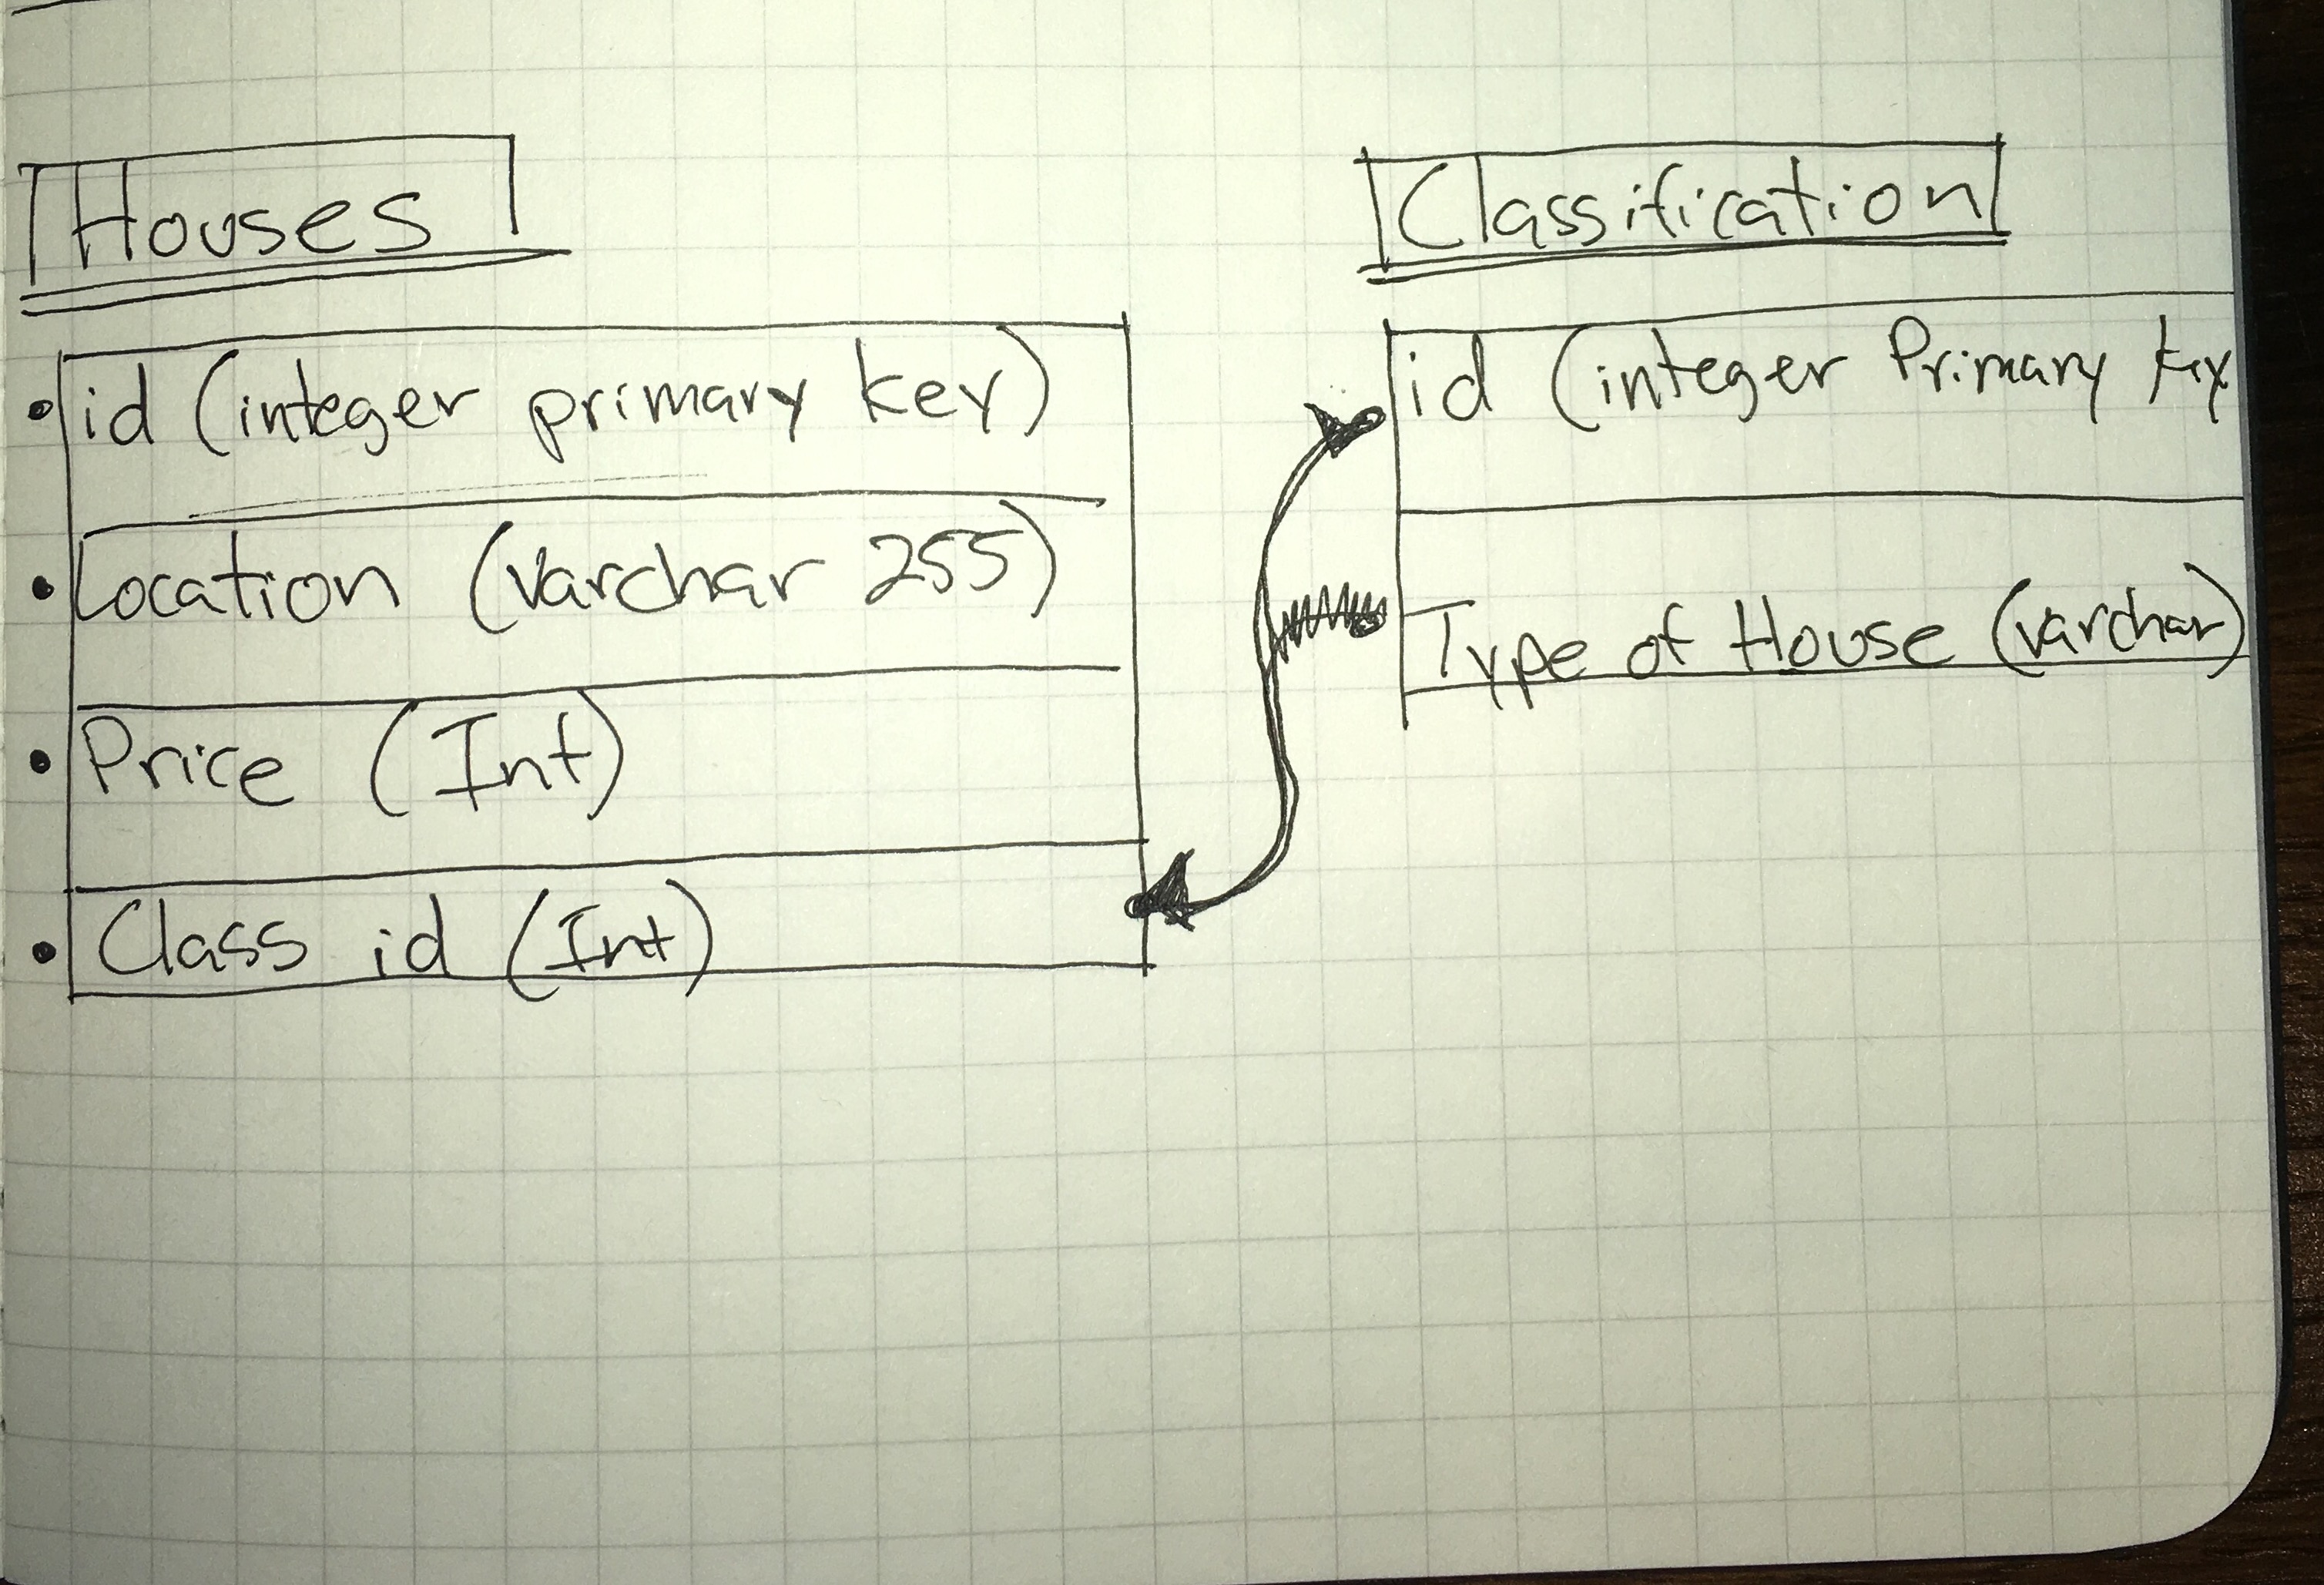 Houses
id (integer primary key)
Location (varchar 255)
Price (Int)
Class id (Int)
Classification
id (integer Primary key
Type of House (varchar)